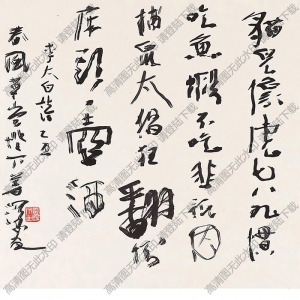 貓兒像虎七八九慣
吃魚蝦不吃韭祇因
捕鼠太猖狂翻倒
床頭一壺酒
李太白詩乙丑
春風草堂燈下書
高清图无此水印 请登陆下载